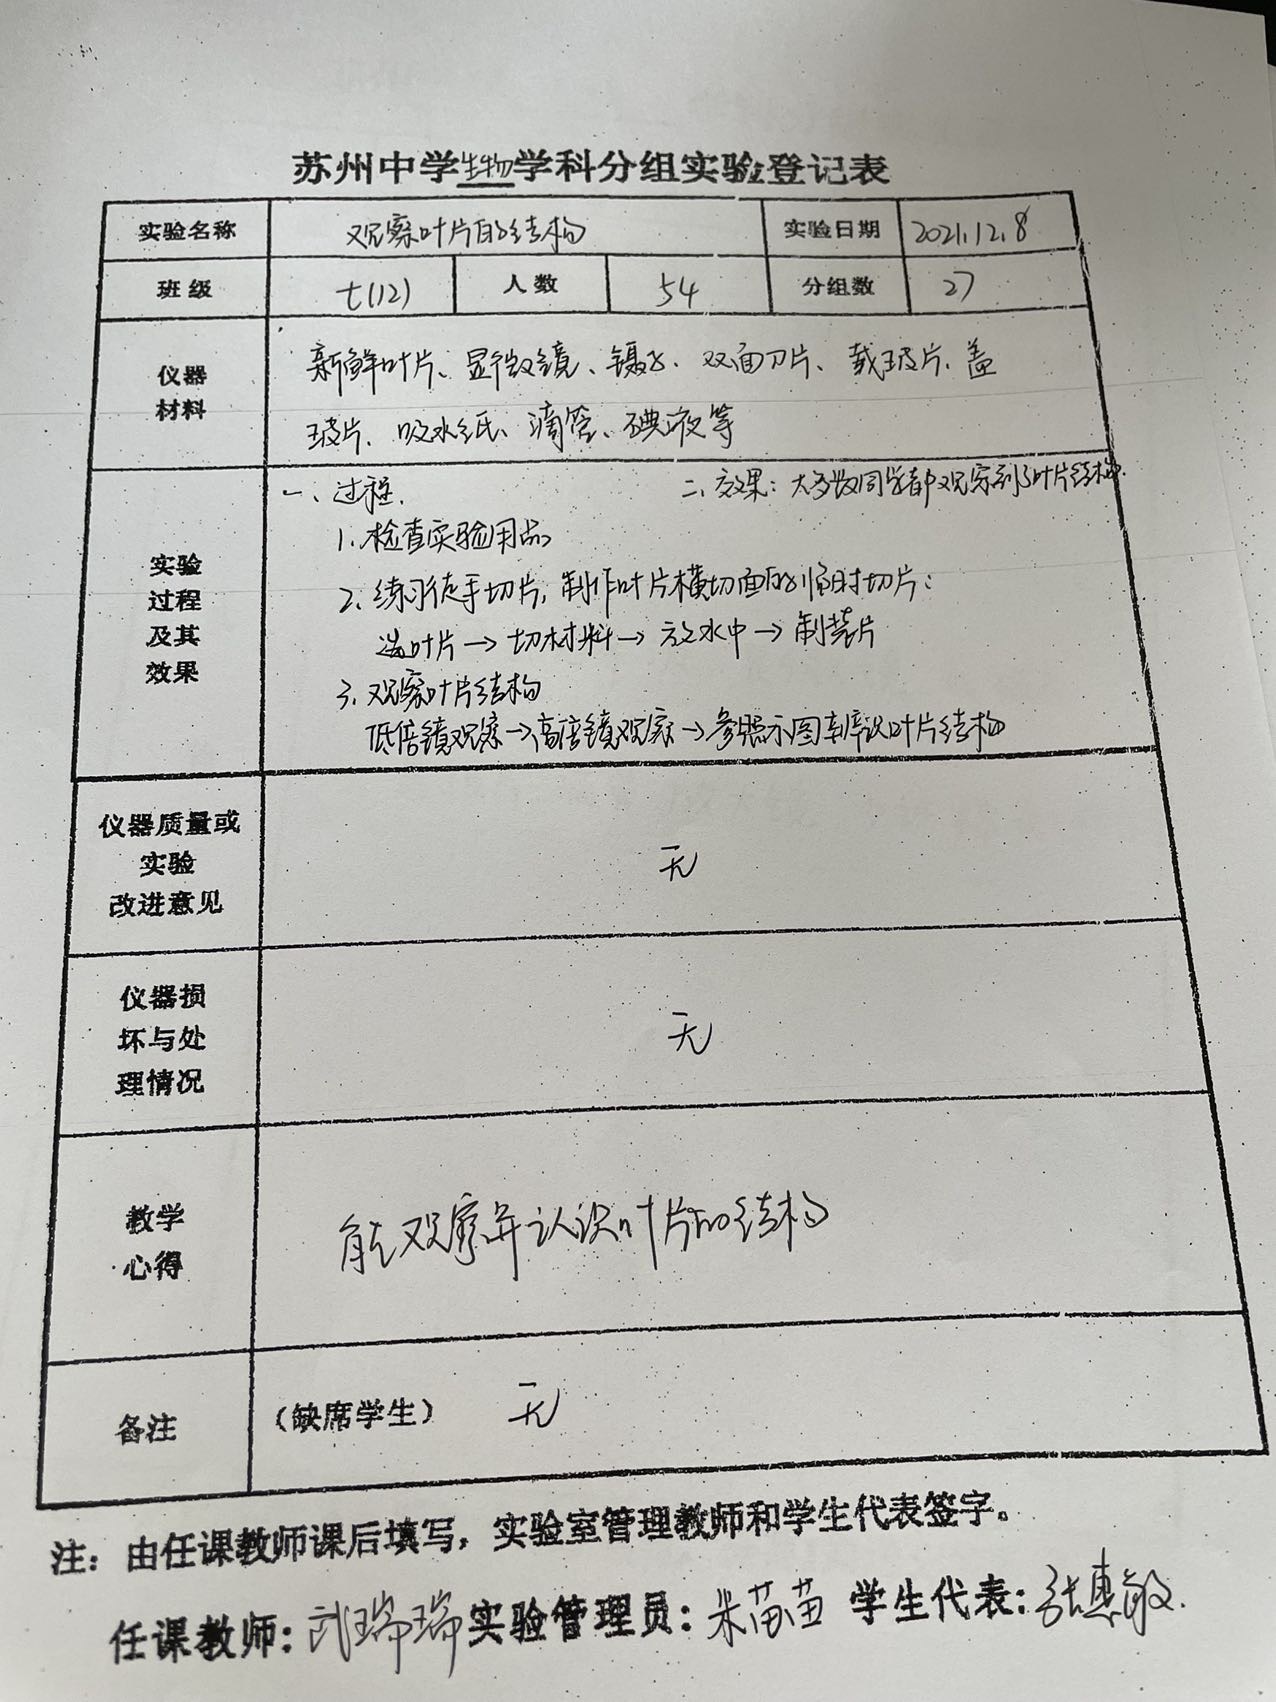 苏州中学生物学科分组实验登记表
实验名称 观察叶片的结构 实验日期 2021.12.8
班级 七(12) 人数 54 分组数 27
仪器
材料
新鲜叶片、显微镜、镊子、双面刀片、载玻片、盖
玻片、吸水纸、滴管、碘液等
实验
过程
及其
效果
一、过程.
二、效果：大多数同学都观察到了叶片结构.
1.检查实验用品
2.练习徒手切片,制作叶片横切面的临时切片：
选叶片→切材料→放水中→制装片
3.观察叶片结构
低倍镜观察→高倍镜观察→参照示图辨认叶片结构
仪器质量或
实验
改进意见
无
仪器损
坏与处
理情况
无
教学
心得
能观察并认识叶片的结构
备注
（缺席学生） 无
注：由任课教师课后填写，实验室管理教师和学生代表签字。
任课教师：武瑞瑞 实验管理员：米苗苗 学生代表：张惠敏.